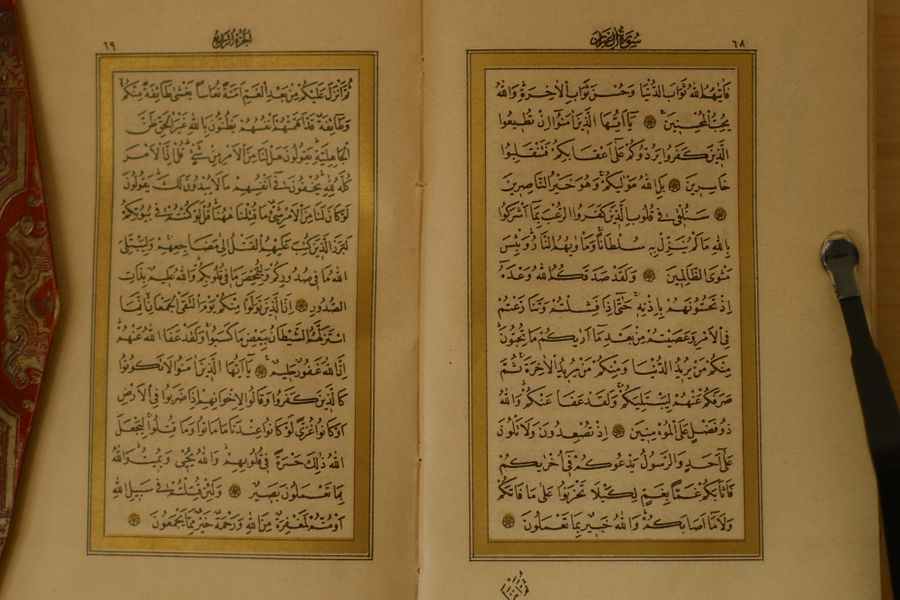 ٦٨ سورة آل عمران
فَاٰتٰيهُمُ اللّٰهُ ثَوَابَ الدُّنْيَا وَحُسْنَ ثَوَابِ الْاٰخِرَةِ وَاللّٰهُ
يُحِبُّ الْمُحْسِنِينَ يَٓا اَيُّهَا الَّذِينَ اٰمَنُٓوا اِنْ تُطِيعُوا
الَّذِينَ كَفَرُوا يَرُدُّوكُمْ عَلٰٓى اَعْقَابِكُمْ فَتَنْقَلِبُوا
خَاسِرِينَ بَلِ اللّٰهُ مَوْلٰيكُمْ وَهُوَ خَيْرُ النَّاصِرِينَ
سَنُلْقِي فِي قُلُوبِ الَّذِينَ كَفَرُوا الرُّعْبَ بِمَٓا اَشْرَكُوا
بِاللّٰهِ مَا لَمْ يُنَزِّلْ بِهِ سُلْطَانًا وَمَأْوٰيهُمُ النَّارُ وَبِئْسَ
مَثْوَى الظَّالِمِينَ وَلَقَدْ صَدَقَكُمُ اللّٰهُ وَعْدَهُٓ
اِذْ تَحُسُّونَهُمْ بِاِذْنِهِ حَتّٰٓى اِذَا فَشِلْتُمْ وَتَنَازَعْتُمْ
فِي الْاَمْرِ وَعَصَيْتُمْ مِنْ بَعْدِ مَٓا اَرٰيكُمْ مَا تُحِبُّونَ
مِنْكُمْ مَنْ يُرِيدُ الدُّنْيَا وَمِنْكُمْ مَنْ يُرِيدُ الْاٰخِرَةَ ثُمَّ
صَرَفَكُمْ عَنْهُمْ لِيَبْتَلِيَكُمْ وَلَقَدْ عَفَا عَنْكُمْ وَاللّٰهُ
ذُو فَضْلٍ عَلَى الْمُؤْمِنِينَ اِذْ تُصْعِدُونَ وَلَا تَلْوُونَ
عَلٰٓى اَحَدٍ وَالرَّسُولُ يَدْعُوكُمْ فِٓي اُخْرٰيكُمْ
فَاَثَابَكُمْ غَمًّا بِغَمٍّ لِكَيْلَا تَحْزَنُوا عَلٰى مَا فَاتَكُمْ
وَلَا مَٓا اَصَابَكُمْ وَاللّٰهُ خَبِيرٌ بِمَا تَعْمَلُونَ
ثم انزل
الجزء الرابع ٦٩
ثُمَّ اَنْزَلَ عَلَيْكُمْ مِنْ بَعْدِ الْغَمِّ اَمَنَةً نُعَاسًا يَغْشٰى طَٓائِفَةً مِنْكُمْ
وَطَٓائِفَةٌ قَدْ اَهَمَّتْهُمْ اَنْفُسُهُمْ يَظُنُّونَ بِاللّٰهِ غَيْرَ الْحَقِّ ظَنَّ
الْجَاهِلِيَّةِ يَقُولُونَ هَلْ لَنَا مِنَ الْاَمْرِ مِنْ شَيْءٍ قُلْ اِنَّ الْاَمْرَ
كُلَّهُ لِلّٰهِ يُخْفُونَ فِٓي اَنْفُسِهِمْ مَا لَا يُبْدُونَ لَكَ يَقُولُونَ
لَوْ كَانَ لَنَا مِنَ الْاَمْرِ شَيْءٌ مَا قُتِلْنَا هٰهُنَا قُلْ لَوْ كُنْتُمْ فِي بُيُوتِكُمْ
لَبَرَزَ الَّذِينَ كُتِبَ عَلَيْهِمُ الْقَتْلُ اِلٰى مَضَاجِعِهِمْ وَلِيَبْتَلِيَ
اللّٰهُ مَا فِي صُدُورِكُمْ وَلِيُمَحِّصَ مَا فِي قُلُوبِكُمْ وَاللّٰهُ عَلِيمٌ بِذَاتِ
الصُّدُورِ اِنَّ الَّذِينَ تَوَلَّوْا مِنْكُمْ يَوْمَ الْتَقَى الْجَمْعَانِ اِنَّمَا
اسْتَزَلَّهُمُ الشَّيْطَانُ بِبَعْضِ مَا كَسَبُوا وَلَقَدْ عَفَا اللّٰهُ عَنْهُمْ
اِنَّ اللّٰهَ غَفُورٌ حَلِيمٌ يَٓا اَيُّهَا الَّذِينَ اٰمَنُوا لَا تَكُونُوا
كَالَّذِينَ كَفَرُوا وَقَالُوا لِاِخْوَانِهِمْ اِذَا ضَرَبُوا فِي الْاَرْضِ
اَوْ كَانُوا غُزًّى لَوْ كَانُوا عِنْدَنَا مَا مَاتُوا وَمَا قُتِلُوا لِيَجْعَلَ
اللّٰهُ ذٰلِكَ حَسْرَةً فِي قُلُوبِهِمْ وَاللّٰهُ يُحْيِي وَيُمِيتُ وَاللّٰهُ
بِمَا تَعْمَلُونَ بَصِيرٌ وَلَئِنْ قُتِلْتُمْ فِي سَبِيلِ اللّٰهِ
اَوْ مُتُّمْ لَمَغْفِرَةٌ مِنَ اللّٰهِ وَرَحْمَةٌ خَيْرٌ مِمَّا يَجْمَعُونَ